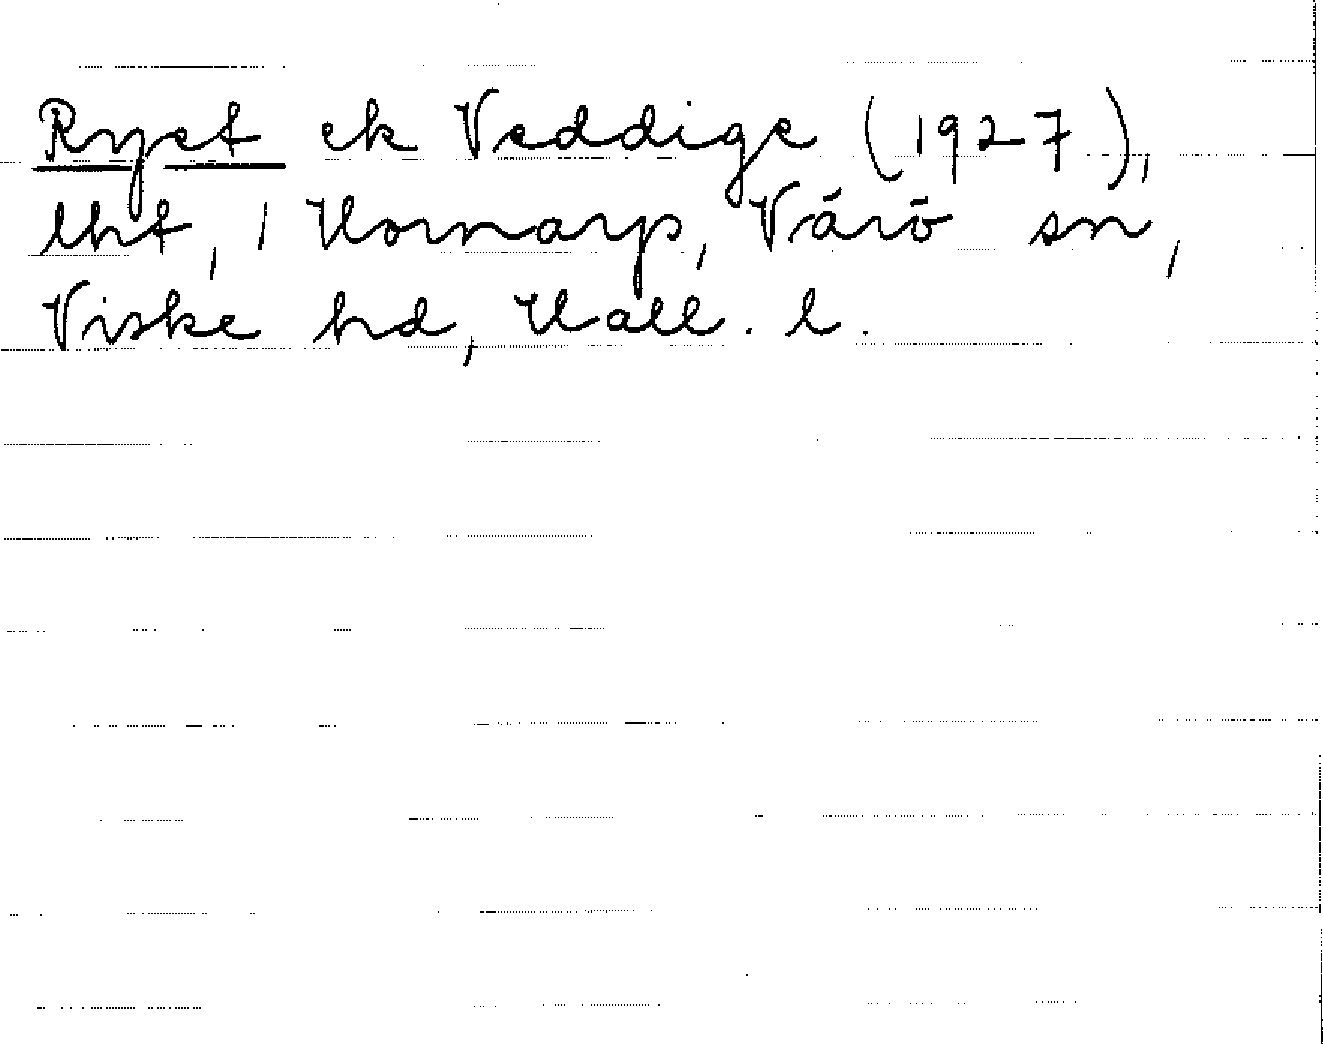 Ryet ek Veddige (1927),
lht, i Hornarp, Värö sn,
Viske hd, Hall. l.